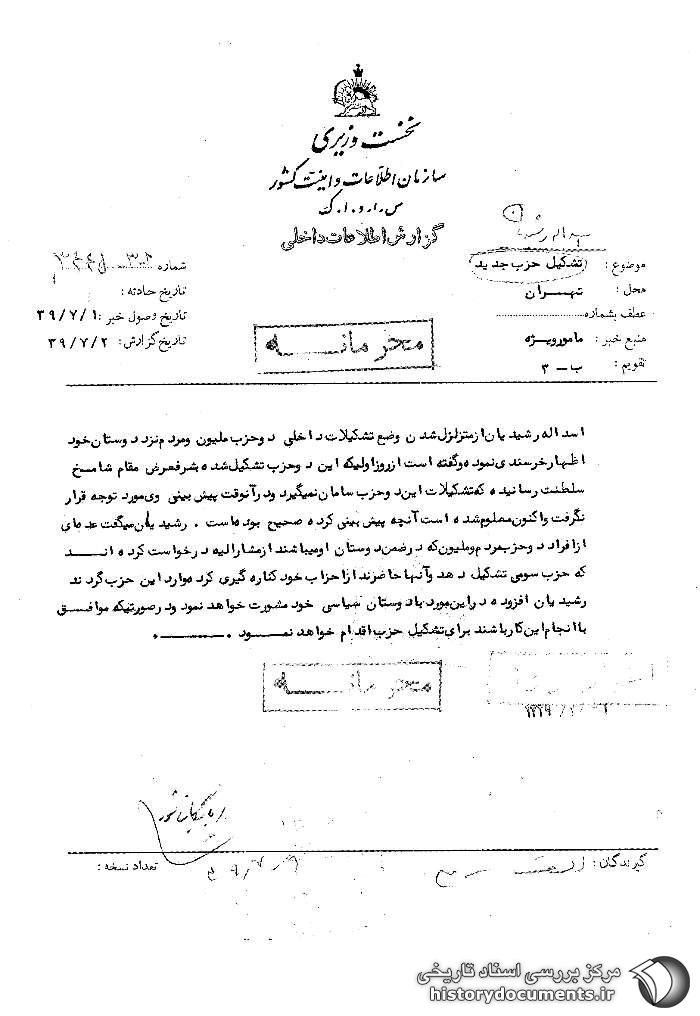 نخست وزیری
سازمان اطلاعات و امنیت کشور
س.ا.و.ا.ک
گزارش اطلاعات داخلی
موضوع : تشکیل حزب جدید
محل : تهران
عطف بشماره
منبع خبر : مامور ویژه
تقویم : ب - ۳
شماره
تاریخ حادثه :
تاریخ وصول خبر : ۳۹/۷/۱
تاریخ گزارش : ۳۹/۷/۲
محرمانه
اسداله رشیدیان از متزلزل شدن وضع تشکیلات داخلی دو حزب ملیون و مردم نزد دوستان خود
اظهار خرسندی نموده و گفته است از روز اولیکه این دو حزب تشکیل شده بشرفعرض مقام شامخ
سلطنت رسانیده که تشکیلات این دو حزب سامان نمیگیرد و در آنوقت پیش بینی وی مورد توجه قرار
نگرفت و اکنون معلوم شده است آنچه پیش بینی کرده صحیح بوده است . رشیدیان میگفت عده ای
از افراد دو حزب مردم و ملیون که در ضمن دوستان او میباشند از مشارالیه درخواست کرده انــد
که حزب سومی تشکیل دهد و آنها حاضرند از احزاب خود کناره گیری کرده وارد این حزب گردند
رشیدیان افزوده در این مورد با دوستان سیاسی خود مشورت خواهد نمود و در صورتیکه موافــق
با انجام این کار باشند برای تشکیل حزب اقدام خواهد نمــود .
محرمانه
گیرندگان :
تعداد نسخه :
مرکز بررسی اسناد تاریخی
historydocuments.ir